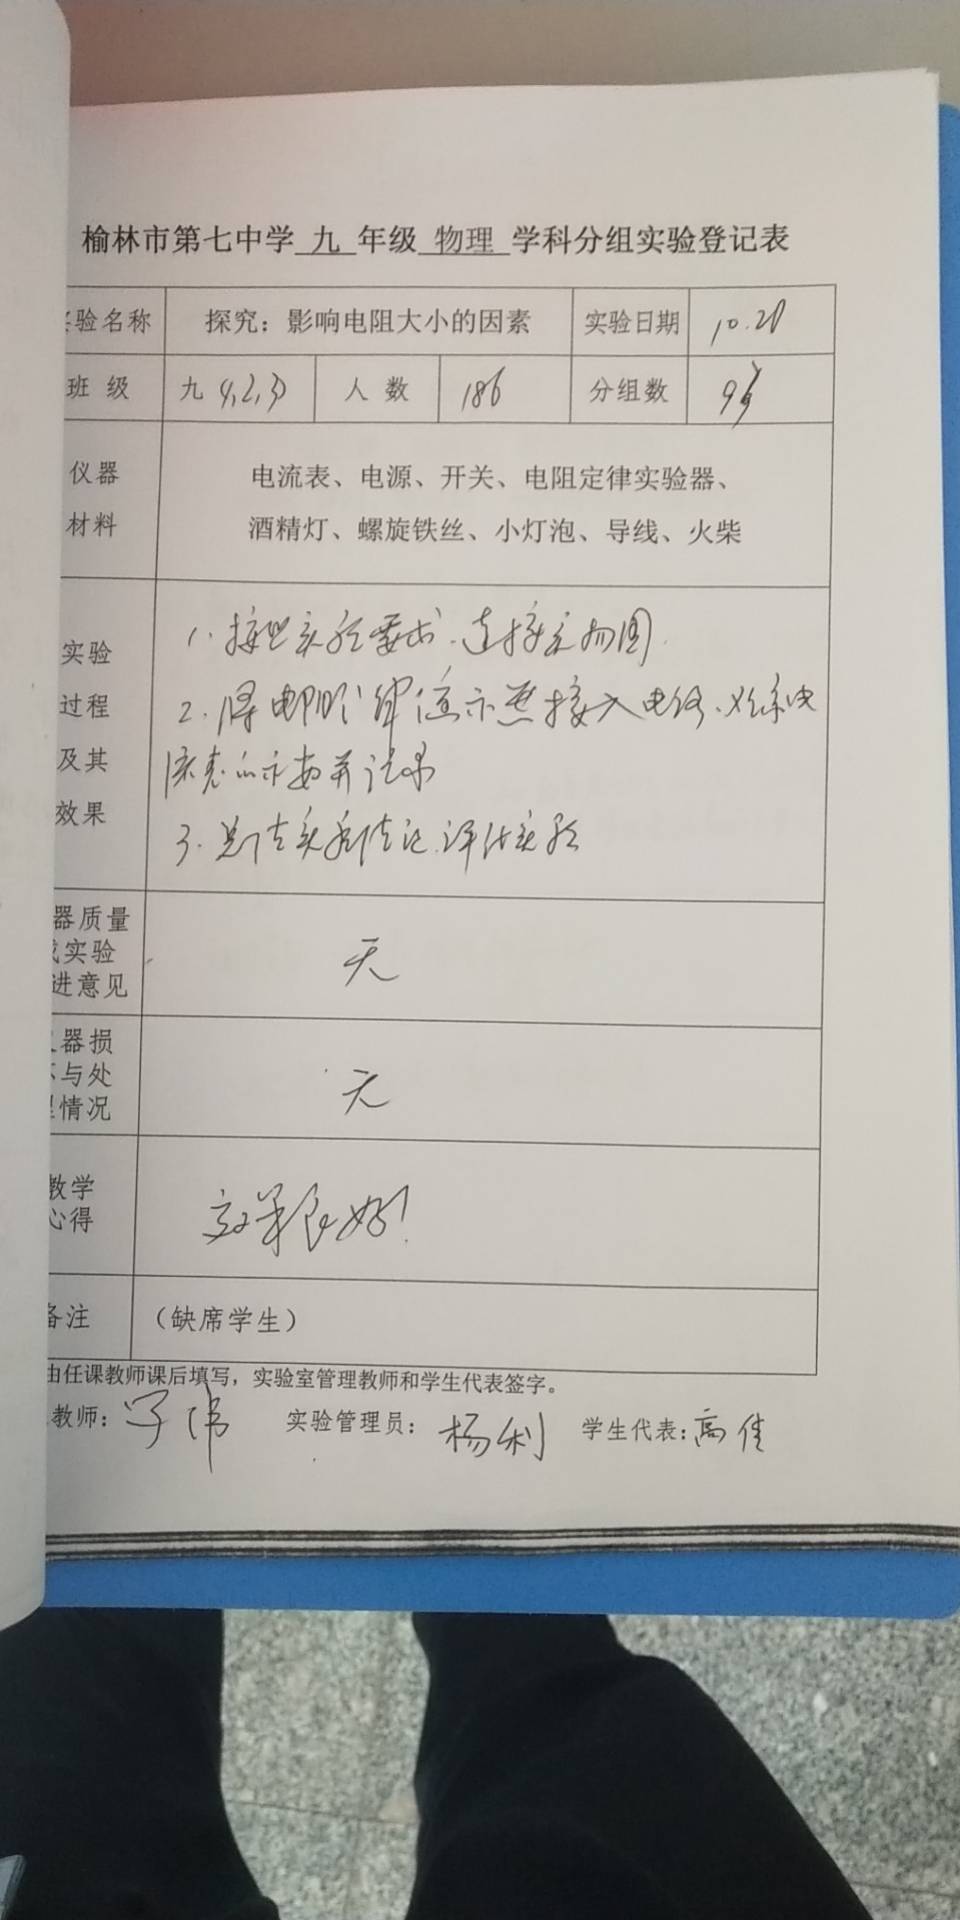 榆林市第七中学 九 年级 物理 学科分组实验登记表
验名称 探究：影响电阻大小的因素 实验日期 10.20
班 级 九 1,2,3) 人 数 186 分组数
仪器
材料
电流表、电源、开关、电阻定律实验器、
酒精灯、螺旋铁丝、小灯泡、导线、火柴
实验
过程
及其
效果
1. 按照实验要求.连接实物图.
2. 将电阻 律演示器接入电路.
表 示数并记录
3. 总结实验结论.评估实验
器质量
实验
进意见
无
器损
与处
情况
无
教学
心得
效果良好!
备注 （缺席学生）
由任课教师课后填写，实验室管理教师和学生代表签字。
教师: 伟 实验管理员: 杨利 学生代表: 高佳